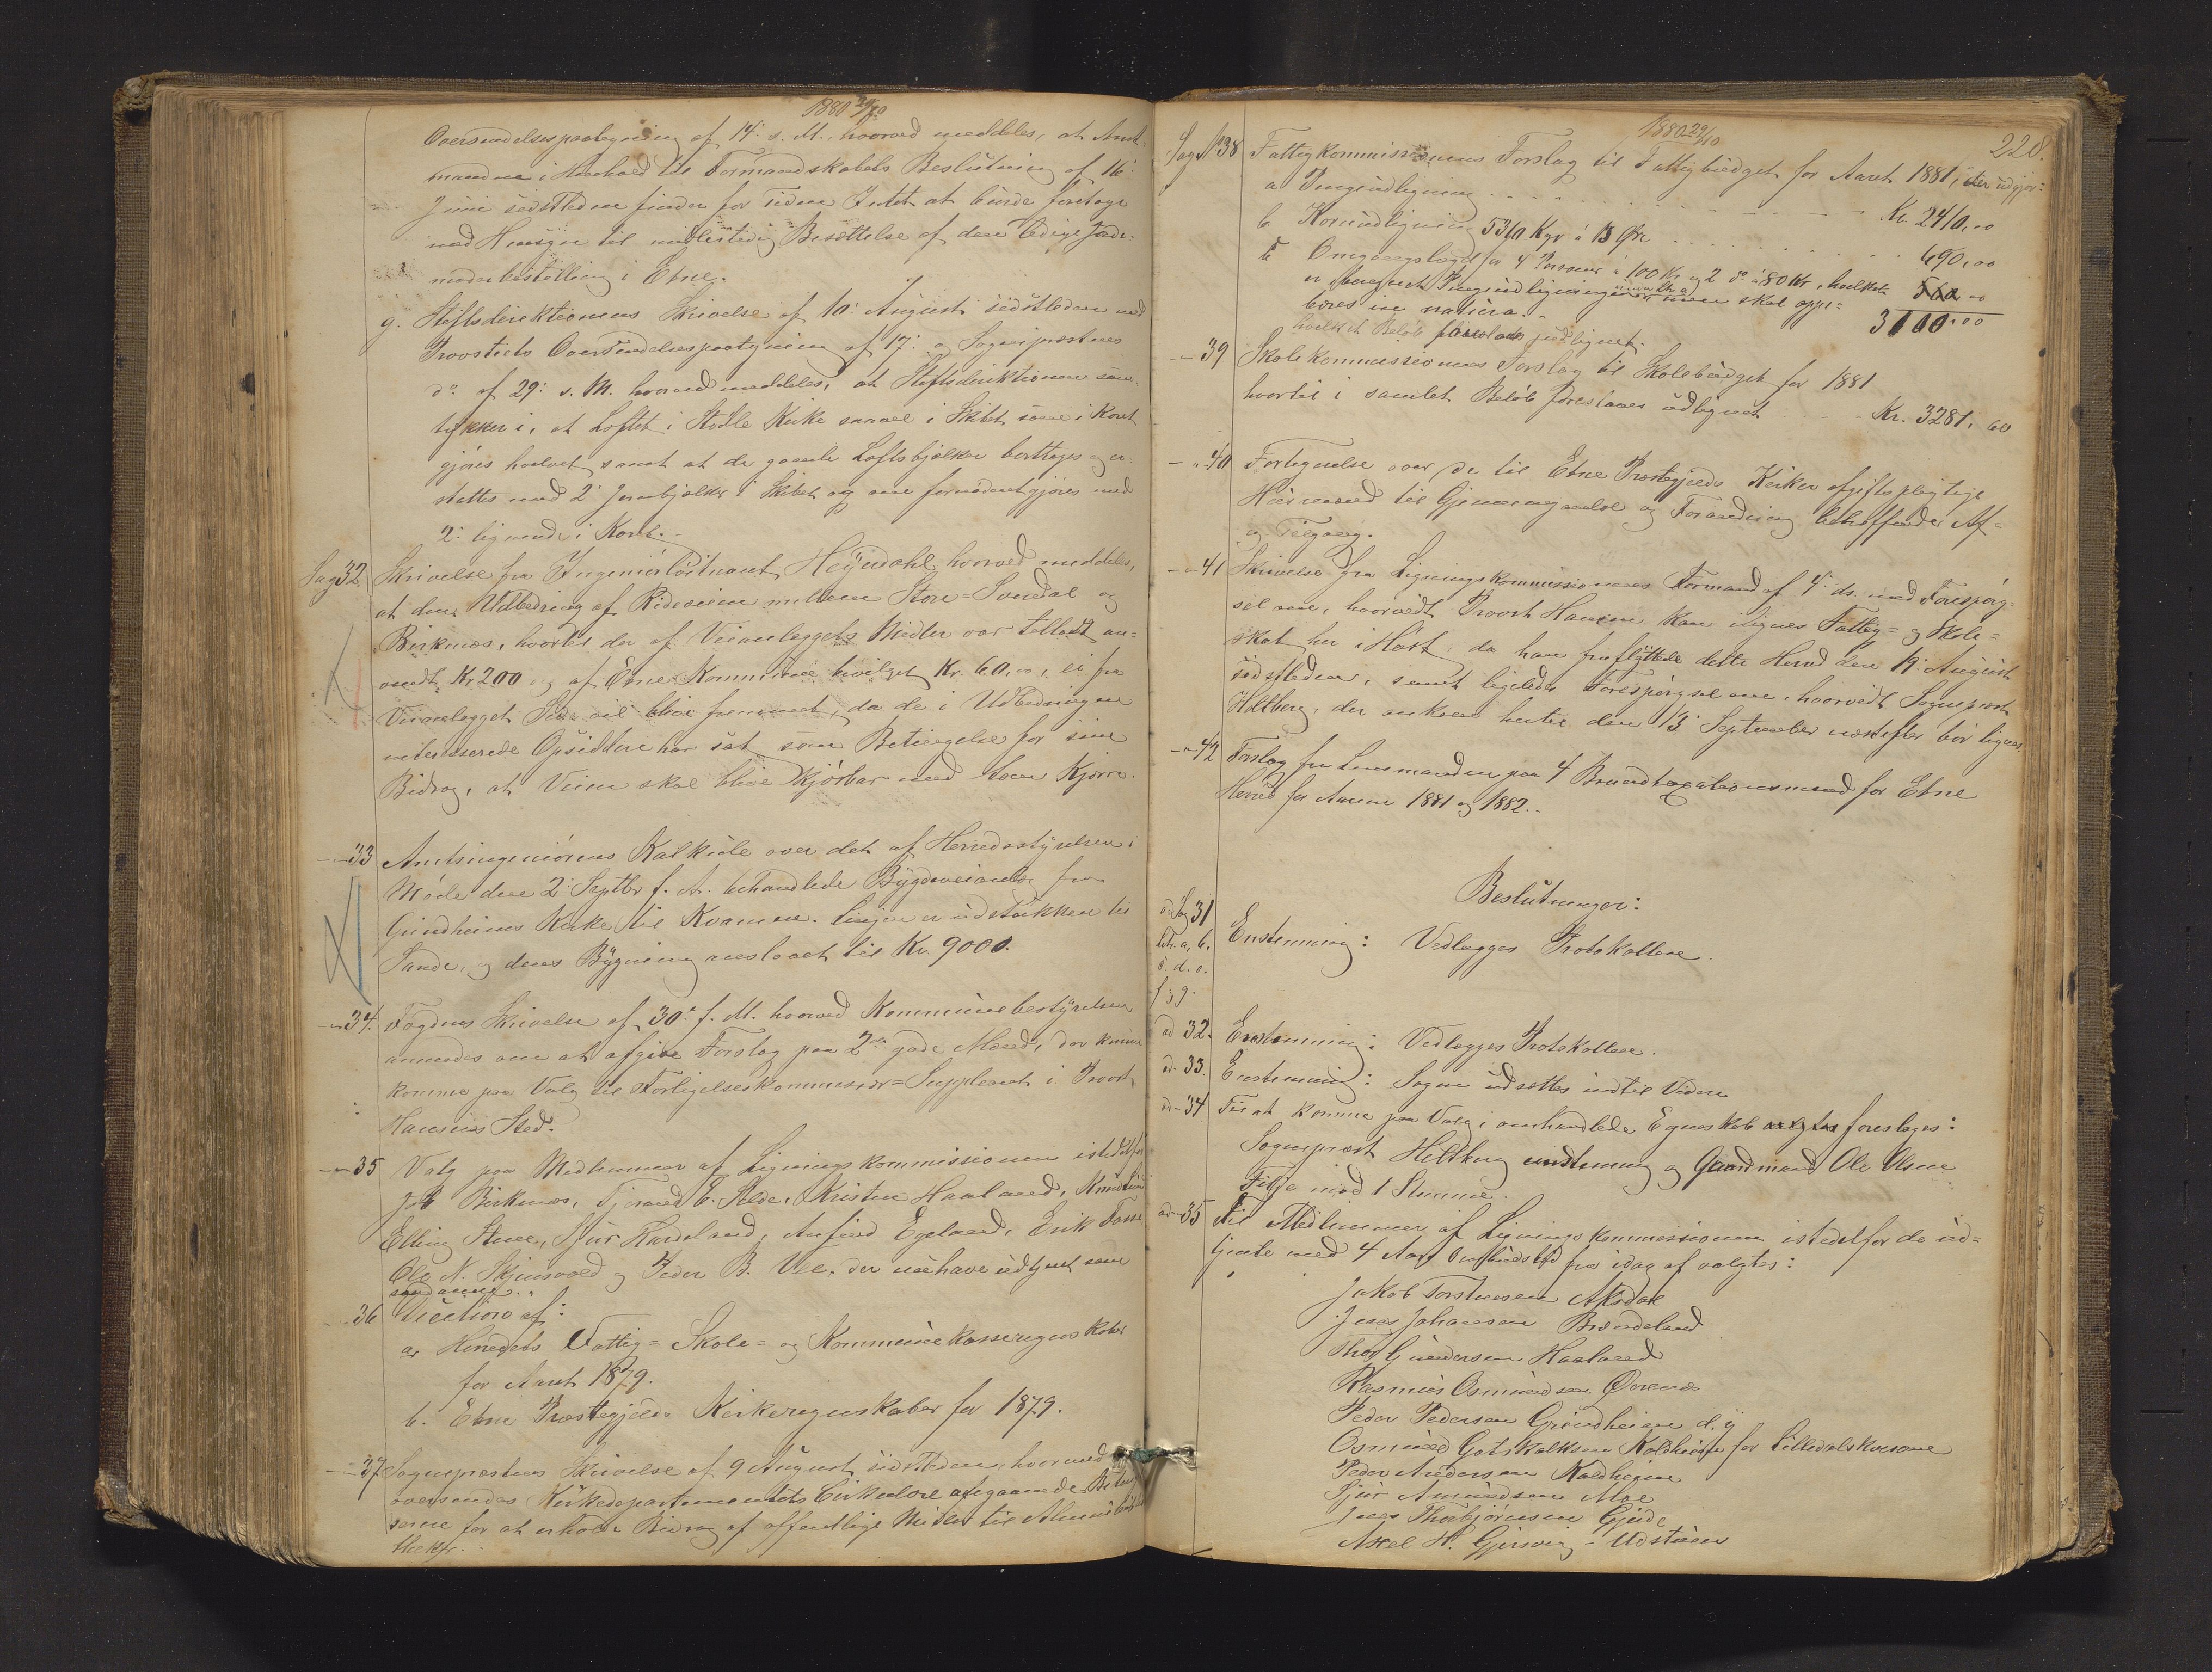 1880 29/10
Oversendelsespaategning af 14. s. M. hvorved meddeles, at Amt-
manden i Henhold til Formandskabets Beslutning af 16.
Juni sidstleden finder for Tiden Intet at burde foretage
med Hensyn til midlertidig Besættelse af den ledige Jorde-
moderbestilling i Etne.
g. Stiftsdirektionens Skrivelse af 10. August sidstleden med
Provstiets Oversendelsespaategning af 17. og Sognepræstens
do. af 29. s. M. hvorved meddeles, at Stiftsdirektionen sam-
tykker i, at Loftet i Stødle Kirke saavel i Skibet som i Koret
gjøres hvælvet samt at de gamle Loftsbjælker borttages og er-
stattes med 2 Jernbjælker i Skibet og om fornødent gjøres med
2. lignende i Koret.
Sag 32 Skrivelse fra Ingeniørløitnant Heyerdahl hvorved meddeles,
at den Udbedring af Rideveien mellem Store-Svendal og
Birkenæs, hvortil der af Veianleggets Midler var tilladt an-
vendt Kr 200 og af Etne Kommune bevilget Kr. 60,00, ei fra
Veianlegget Side vil blive fremmet, da de i Udbedringen
interesserede Opsiddere har sat som Betingelse for sine
Bidrag, at Veien skal blive kjørbar med Kjærre.
-"- 33 Amtsingeniørens Kalkule over det af Herredsstyrelsen i
Møde den 2. Septbr f. A. behandlede Bygdeveianlæg fra
Grindheims Kirke til Kvamme. Linjen er udstukken til
Sande, og dens Bygning anslaaet til Kr. 9000.
-"- 34. Fogdens Skrivelse af 30. f. M. hvorved Kommunebestyrelsen
anmodes om at afgive Forslag paa 2de gode Mænd, der kunne
komme paa Valg til Forligelseskommissær-Suppleant i Provst
Hansens Sted.
-"- 35 Valg paa Medlemmer af Ligningskommissionen istedetfor
Job Birkenæs, Tjerand E. Silde, Kristen Haaland,
Elling Steine, Sjur Hardeland, Anfind Egeland, Erik Fosse,
Ole N. Skjensvold og Peder B. Vee, der nu have udtjent som
saadanne.
-"- 36 Decision af:
a, Herredets Fattig- Skole- og Kommunekasseregnskaber
for Aaret 1879.
b. Etne Præstegjelds Kirkeregnskaber for 1879.
-"- 37 Sognepræstens Skrivelse af 9 August sidstleden, hvormed
oversendes Kirkedepartementets Cirkulære angaaende
serne for at erholde Bidrag af offentlige Midler til Almuebib-
liothek.
1880 29/10
228.
Sag No 38 Fattigkommissionens Forslag til Fattigbudget for Aaret 1881, der udgjør:
a Pengeudligning . . . . Kr. 2410,00
b Kornudligning 5310 Kgr à 13 Øre . . . . 690,00
c Omgangslægd for 4 Personer à 100 Kr og 2 do à 80 Kr, hvilket
er beregnet Pengeudligningen men skal oppe-
bæres in natura.- 3100,00
hvilket Beløb foreslaaes udlignet.
-"- 39 Skolekommissionens Forslag til Skolebudget for 1881
hvortil i samlet Beløb foreslaaes udlignet . . . Kr. 3281,60
-"- 40 Fortegnelse over de til Etne Præstegjelds Kirker afgiftspligtige
Huusmænd til Gjennemgaaelse og Forandring betræffende Af-
og Tilgang.
-"- 41 Skrivelse fra Ligningskommissionens Formand af 4. ds. med Forespørg-
sel om, hvorvidt Provst Hansen kan ilignes Fattig- og Skole-
skat her i Høst, da han fraflyttede dette Herred den 19. August
sidstleden, samt ligeledes Forespørgsel om, hvorvidt Sognepræst
Heltberg, der ankom hertil den 13. September næstefter bør lignes.
-"- 42 Forslag fra Lensmanden paa 4 Brandtaxationsmænd for Etne
Herred for Aarene 1881 og 1882.-
Beslutninger:
ad Sag 31
Litr. a, b,
c. d. e.
f og g.
Enstemmig: Vedlægges Protokollen.
ad 32. Enstemmig: Vedlægges Protokollen.
ad 33. Enstemmig: Sagen udsættes indtil Videre
ad 34 Til at komme paa Valg i omhandlede Egenskab foreslages:
Sognepræst Heltberg enstemmig og Gaardmand Ole Olsen
Fitje med 1 Stemme.
ad 35 Til Medlemmer af Ligningskommissionen istedetfor de ud-
tjente med 4 Aars fra idag af valgtes:
Jakob Torstensen Aksdal
Jens Johansen Brendeland
Thor Gundersen Haaland
Rasmus Osmundsen Øvernæs
Peder Pedersen Grindheim d. y
Osmund Gotskalksen Koldheim for Lilledalskredsene
Peder Andersen Kaldheim
Sjur Amundsen Moe
Jens Thorbjørnsen Gjerde
Axel H. Gjersvig - Udstrøm